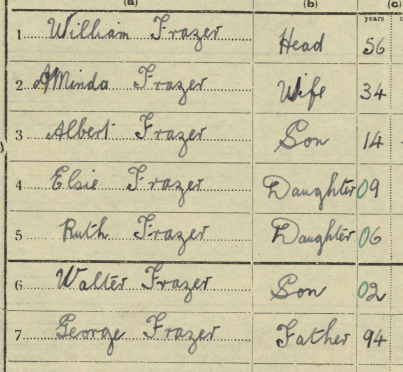 (a) (b) (c)
years
1 William Frazer Head 56
2 AMinda Frazer Wife 34
3 Albert Frazer Son 14
4 Elsie Frazer Daughter 09
5 Ruth Frazer Daughter 06
6 Walter Frazer Son 02
7 George Frazer Father 94